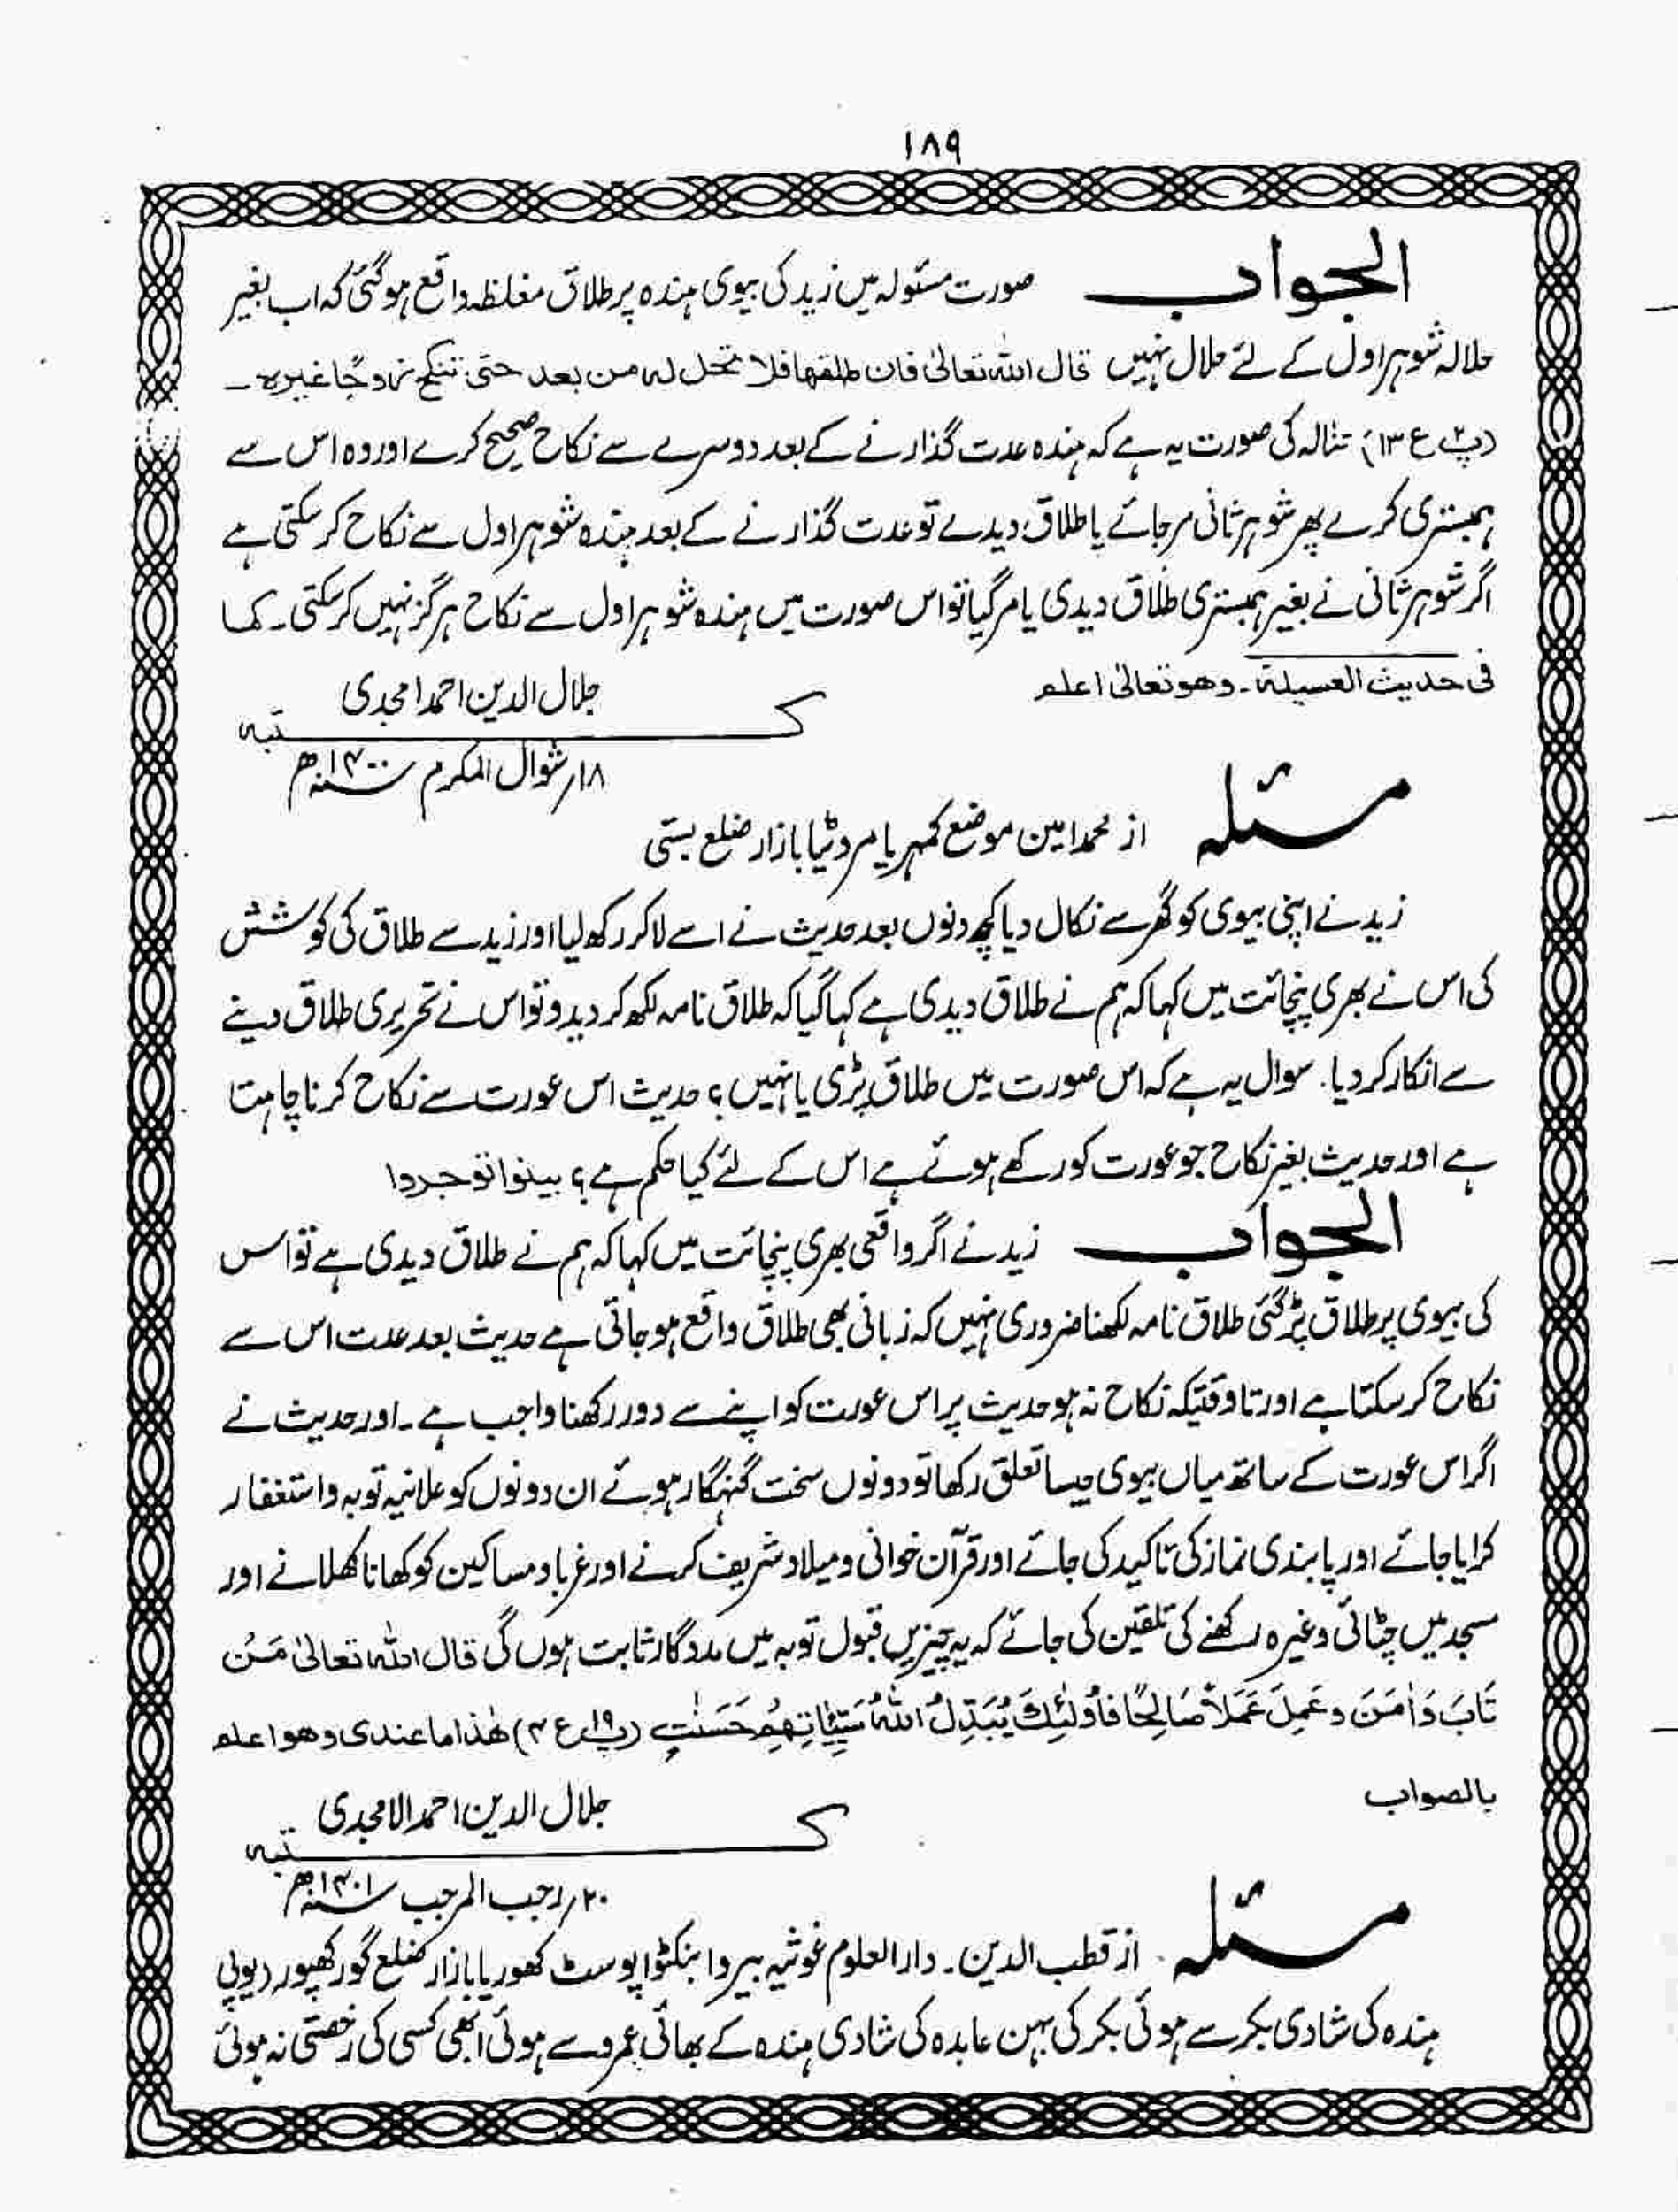 ۱۸۹
الجواب صورت مسئولہ میں زید کی بیوی ہندہ پر طلاق مغلظہ واقع ہوگئی کہ اب بغیر
حلالہ شوہر اول کے لئے حلال نہیں قال اللہ تعالیٰ فان طلقھا فلا تحل لہ من بعد حتی تنکح زوجًا غیرہ۔
(پ۲ ع ۱۳) حلالہ کی صورت یہ ہے کہ ہندہ عدت گذارنے کے بعد دوسرے سے نکاح صحیح کرے اور وہ اس سے
ہمبستری کرے پھر شوہر ثانی مرجائے یا طلاق دیدے تو عدت گذارنے کے بعد ہندہ شوہر اول سے نکاح کرسکتی ہے
اگر شوہر ثانی نے بغیر ہمبستری طلاق دیدی یا مرگیا تو اس صورت میں ہندہ شوہر اول سے نکاح ہرگز نہیں کرسکتی۔ کما
فی حدیث العسیلۃ۔ وھو تعالیٰ اعلم
جلال الدین احمد امجدی
کتبہ
۱۸؍ شوال المکرم ۱۴۰۰ھ
مسئلہ از محمد امین موضع کمہریا مروٹیا بازار ضلع بستی
زید نے اپنی بیوی کو گھر سے نکال دیا کچھ دنوں بعد حدیث نے اسے لاکر رکھ لیا اور زید سے طلاق کی کوشش
کی اس نے بھری پنچائت میں کہا کہ ہم نے طلاق دیدی ہے کہا گیا کہ طلاق نامہ لکھ کر دیدو تو اس نے تحریری طلاق دینے
سے انکار کردیا۔ سوال یہ ہے کہ اس صورت میں طلاق پڑی یا نہیں؟ حدیث اس عورت سے نکاح کرنا چاہتا
ہے اور حدیث بغیر نکاح جو عورت کو رکھے ہوئے ہے اس کے لئے کیا حکم ہے؟ بینوا توجروا
الجواب زید نے اگر واقعی بھری پنچائت میں کہا کہ ہم نے طلاق دیدی ہے تو اس
کی بیوی پر طلاق پڑگئی طلاق نامہ لکھنا ضروری نہیں کہ زبانی بھی طلاق واقع ہو جاتی ہے حدیث بعد عدت اس سے
نکاح کرسکتا ہے اور تاوقتیکہ نکاح نہ ہو حدیث پر اس عورت کو اپنے سے دور رکھنا واجب ہے۔ اور حدیث نے
اگر اس عورت کے ساتھ میاں بیوی جیسا تعلق رکھا تو دونوں سخت گنہگار ہوئے ان دونوں کو علانیہ توبہ و استغفار
کرایا جائے اور پابندی نماز کی تاکید کی جائے اور قرآن خوانی و میلاد شریف کرنے اور غربا و مساکین کو کھانا کھلانے اور
مسجد میں چٹائی وغیرہ رکھنے کی تلقین کی جائے کہ یہ چیزیں قبول توبہ میں مددگار ثابت ہوں گی قال اللہ تعالیٰ مَنْ
تَابَ وَاٰمَنَ وَعَمِلَ عَمَلًا صَالِحًا فَاُولٰئِكَ يُبَدِّلُ اللّٰهُ سَيِّاٰتِهِمْ حَسَنٰتٍ (پ۱۹ ع ۴) ھٰذا ما عندی وھو اعلم
بالصواب
جلال الدین احمد الامجدی
کتبہ
۲۰؍ رجب المرجب ۱۴۰۱ھ
مسئلہ از قطب الدین۔ دارالعلوم غوثیہ بیروا بنکٹوا پوسٹ کھوریا بازار ضلع گورکھپور (یوپی
ہندہ کی شادی بکر سے ہوئی بکر کی بہن عابدہ کی شادی ہندہ کے بھائی عمرو سے ہوئی ابھی کسی کی رخصتی نہ ہوئی